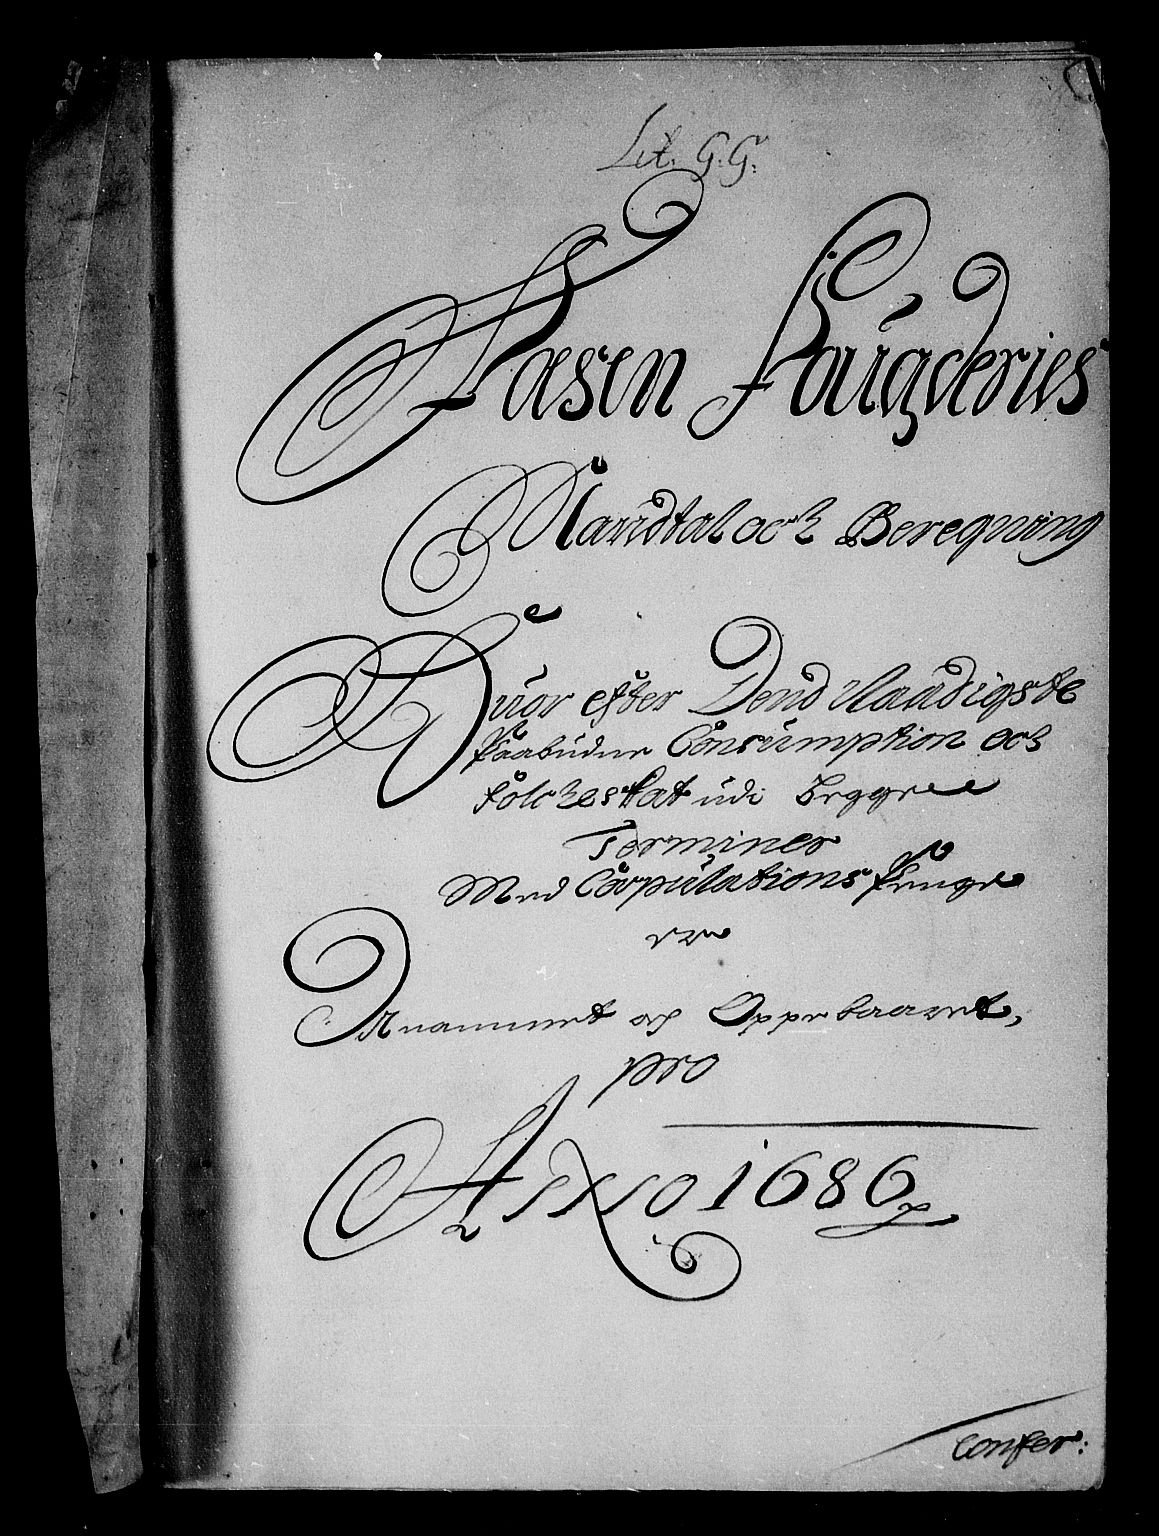 Lit. G.G:
Fosen Fougderies
Mandtal och Beregning
Huor efter Dend Naadigste
Paabudne Consumption och
folckeskat udi begge
Terminer
Med Copulations Penge
er
Annammet og Oppebaaret,
pro
Anno 1686
Confer: